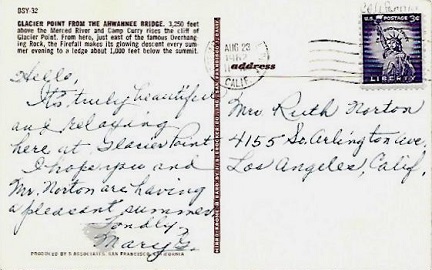 DSY-32
GLACIER POINT FROM THE AHWANNEE BRIDGE. 3,250 feet
above the Merced River and Camp Curry rises the cliff of
Glacier Point. From here, just east of the famous Overhang-
ing Rock, the Firefall makes its glowing descent every sum-
mer evening to a ledge about 1,000 feet below the summit.
Hello,
It's truly beautiful
and relaxing
here at Glacier Point.
I hope you and
Mr. Norton are having
a pleasant summer
Fondly,
Mary G.
PRODUCED BY S ASSOCIATES, SAN FRANCISCO, CALIFORNIA
address
AUG 23
CALIF
U.S. POSTAGE 3¢
LIBERTY
Mrs Ruth Norton
4155 So. Arlington Ave.
Los Angeles, Calif.